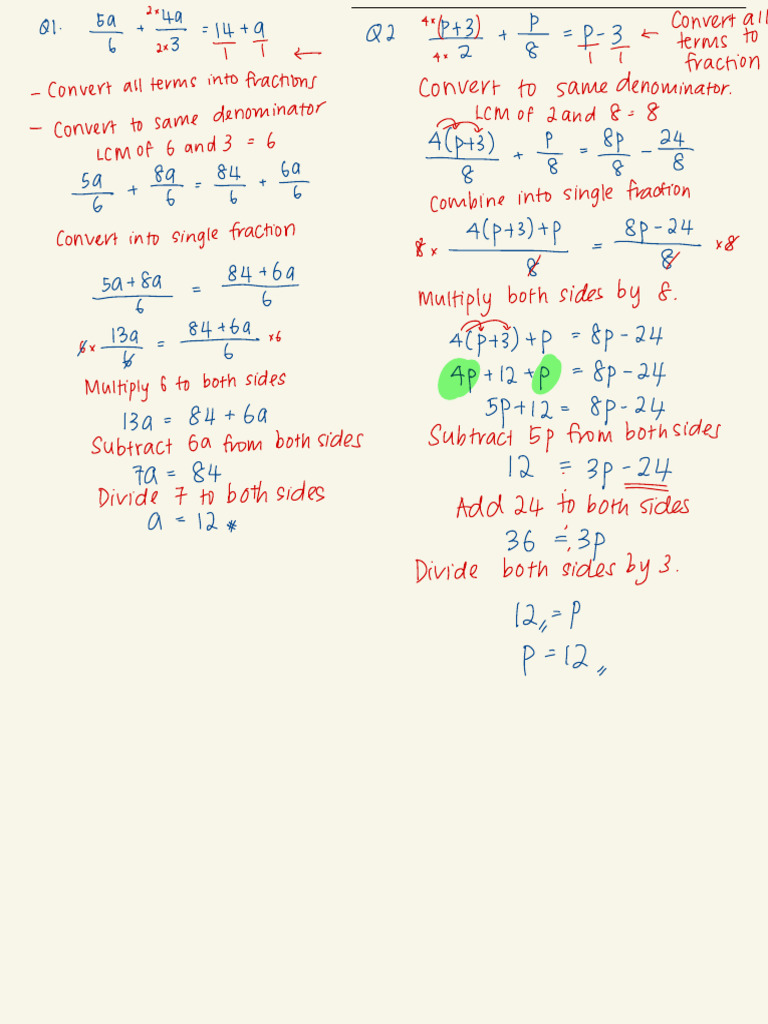 Q1. 5a/6 + 2×4a/2×3 = 14/1 + a/1 ←
- Convert all terms into fractions
- Convert to same denominator
LCM of 6 and 3 = 6
5a/6 + 8a/6 = 84/6 + 6a/6
Convert into single fraction
5a+8a/6 = 84+6a/6
6× 13a/6 = 84+6a/6 ×6
Multiply 6 to both sides
13a = 84 + 6a
Subtract 6a from both sides
7a = 84
Divide 7 to both sides
a = 12 *
Q2 4×(p+3)/4×2 + p/8 = p/1 - 3/1 ← Convert all
terms to
fraction
Convert to same denominator.
LCM of 2 and 8 = 8
4(p+3)/8 + p/8 = 8p/8 - 24/8
Combine into single fraction
8× 4(p+3)+p/8 = 8p-24/8 ×8
Multiply both sides by 8.
4(p+3)+p = 8p-24
4p+12+p = 8p-24
5p+12 = 8p-24
Subtract 5p from both sides
12 = 3p-24
Add 24 to both sides
36 = 3p
Divide both sides by 3.
12 = p
p = 12